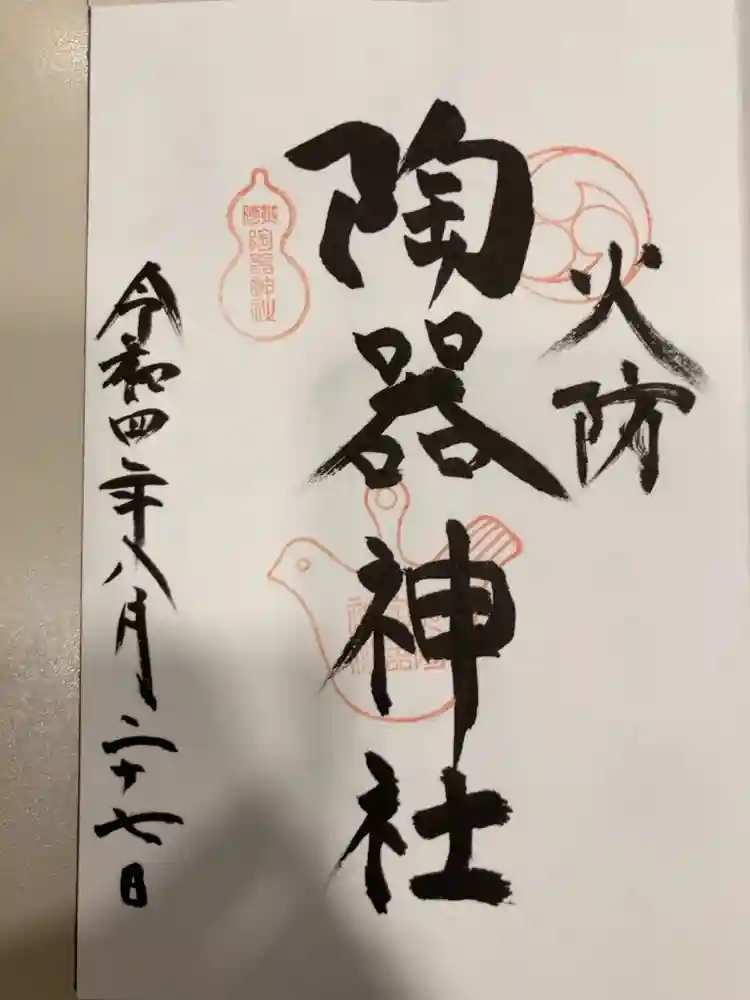 火防
陶器神社
陶器神社
令和四年八月二十七日